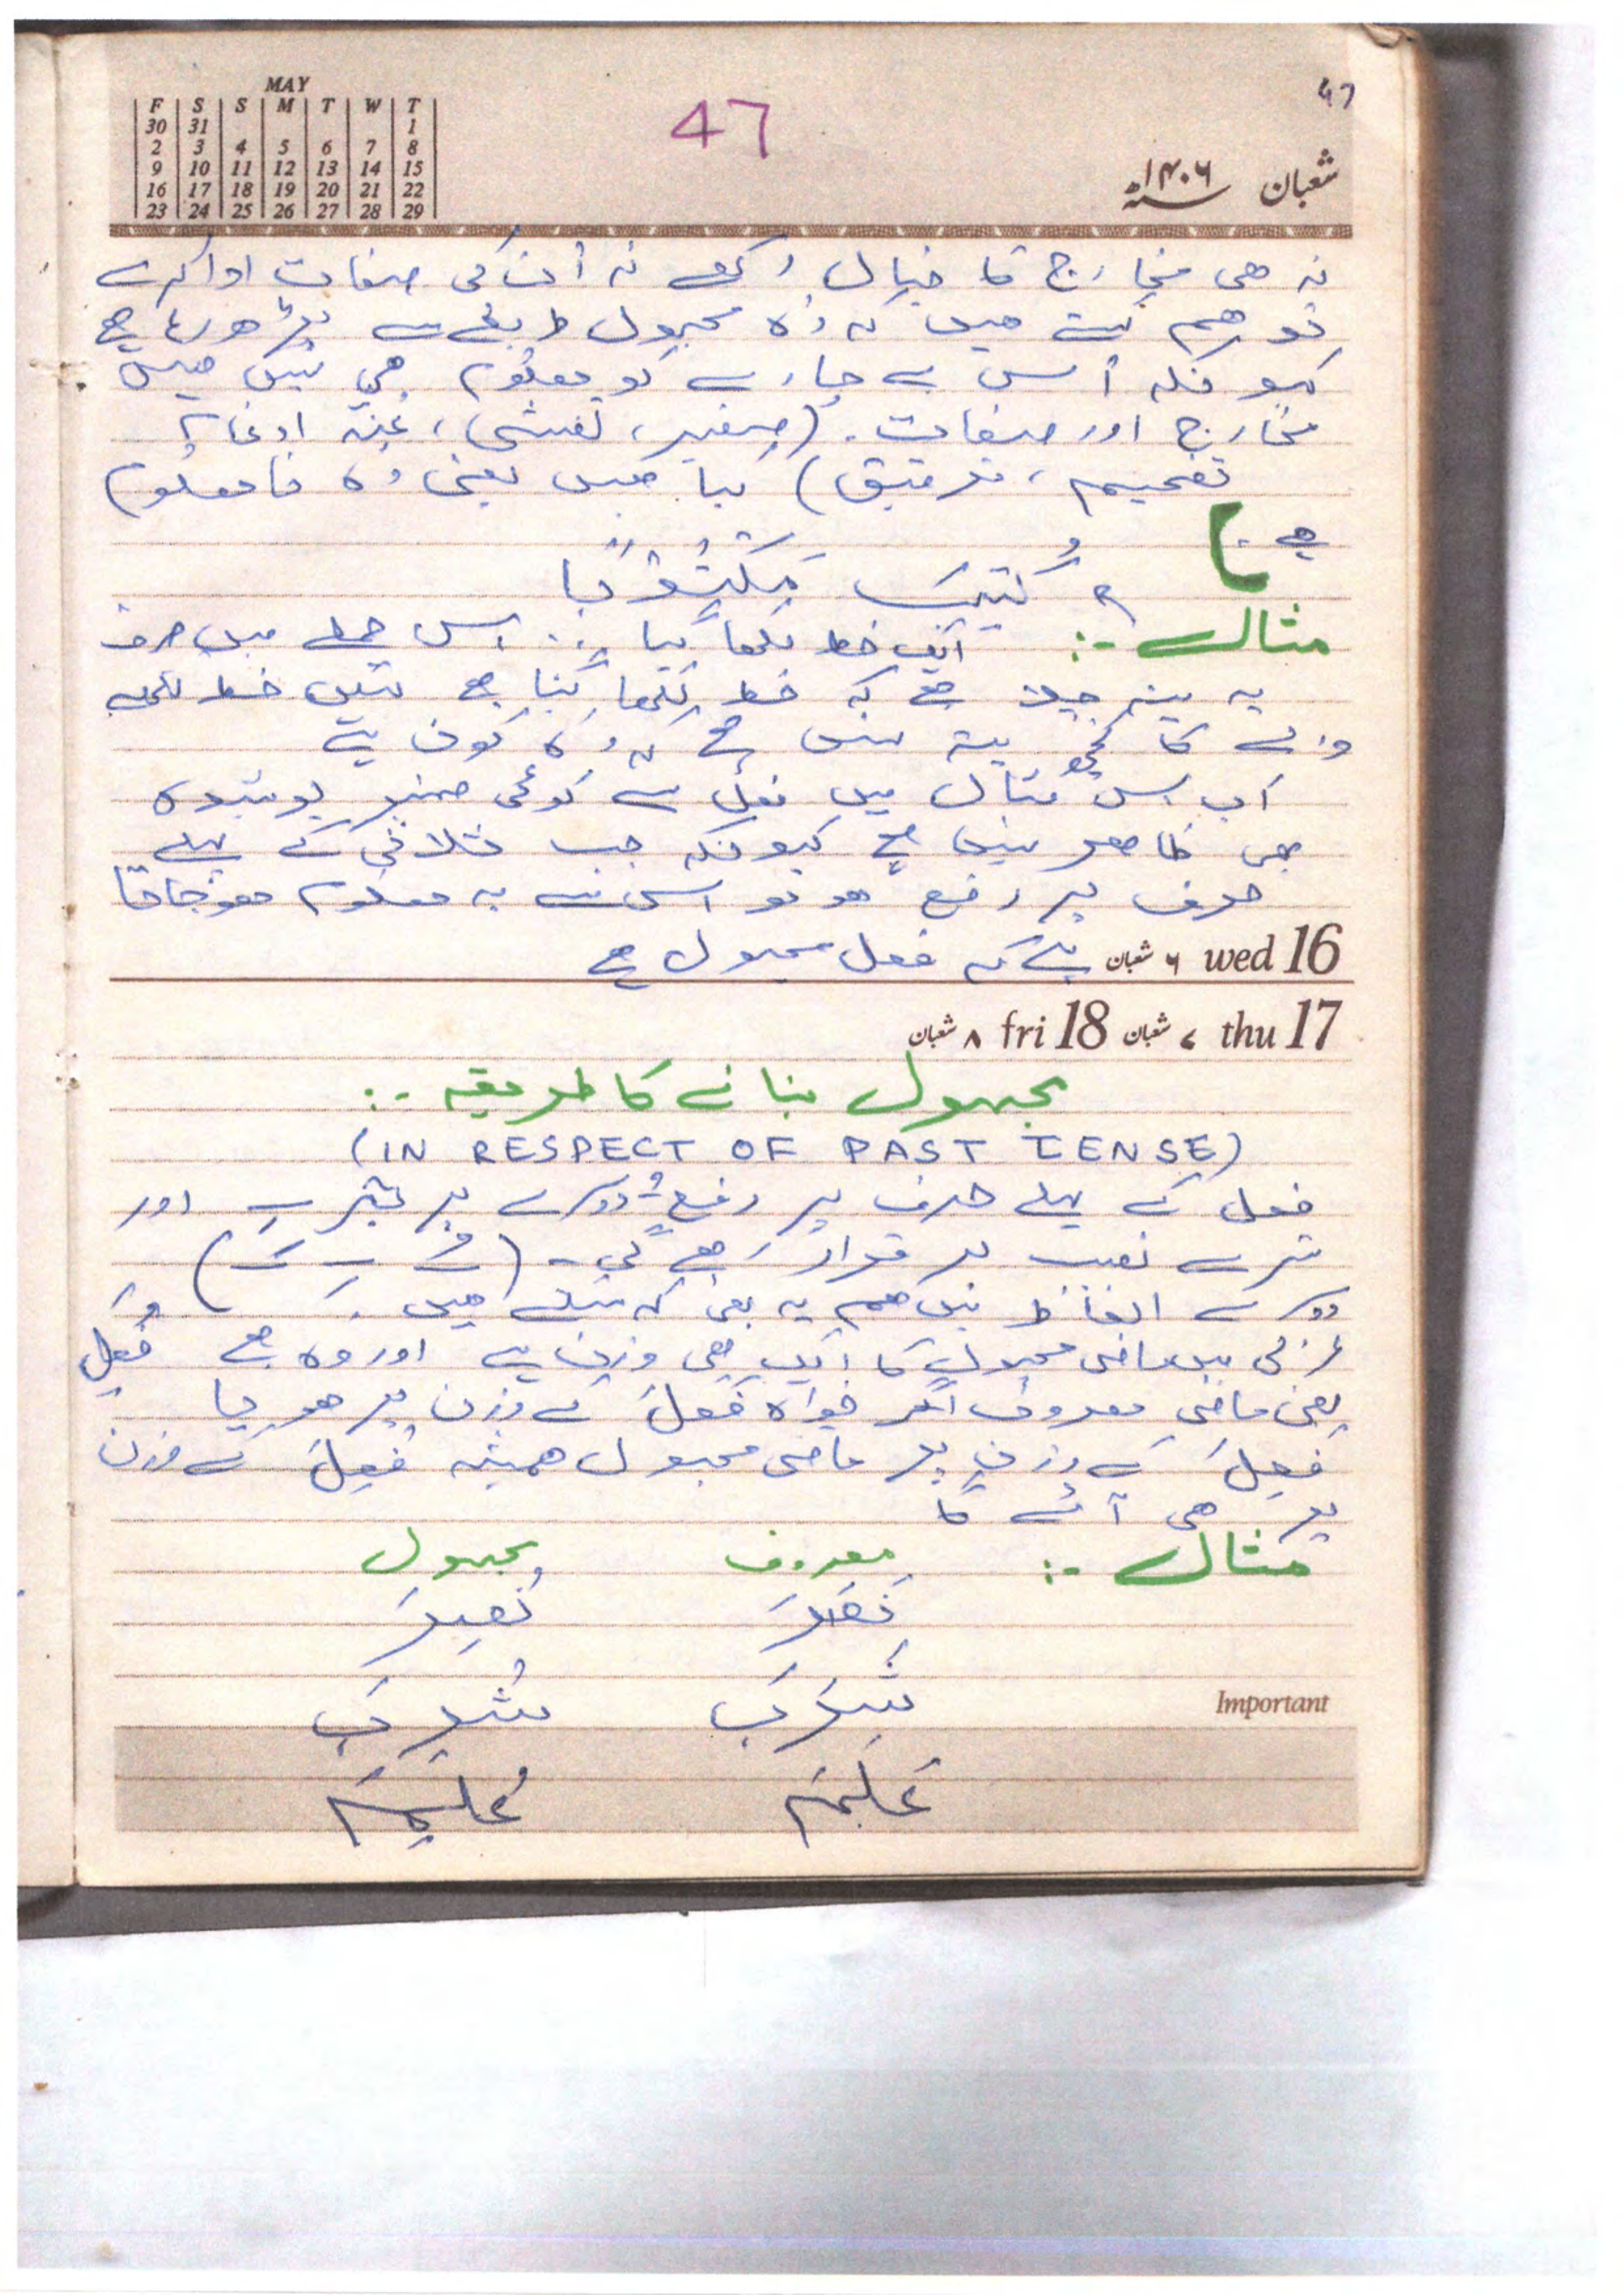 MAY
F S S M T W T
30 31 1
2 3 4 5 6 7 8
9 10 11 12 13 14 15
16 17 18 19 20 21 22
23 24 25 26 27 28 29
47
47
شعبان ۱۴۰۶ھ
نہ ھی مخارج کا خیال رکھے نہ اُن کی صفات ادا کرے
تو ھم کہتے ھیں کہ وہ مجہول طریقے سے پڑھ رہا ھے
کیونکہ اُس بے چارے کو معلوم ھی نہیں ھیں
مخارج اور صفات۔ (صفیر، تفشی، غنہ ادغام
تفخیم، ترقیق) کیا ھیں یعنی وہ نامعلوم
ھے۔)
کُتِبَ مَکْتُوْبًا
مثال :- ایک خط لکھا گیا۔ اِس جملے میں صرف
یہ پتہ چلا ھے کہ خط لکھا گیا ھے لیکن خط لکھنے
والے کا کچھ پتہ نہیں ھے کہ وہ کون ہے
اب اِس مثال میں فعل سے کوئی ضمیر پوشیدہ
بھی ظاھر نہیں ھے کیونکہ جب ثلاثی کے پہلے
حرف پر رفع ھو تو اِس سے یہ معلوم ھو جاتا
ہے کہ فعل مجہول ھے
wed 16 ۶ شعبان
thu 17 ۷ شعبان fri 18 ۸ شعبان
مجہول بنانے کا طریقہ :-
(IN RESPECT OF PAST TENSE)
فعل کے پہلے حرف پر رفع دوسرے پر کسرہ اور
تیسرے نصب برقرار رھے گی۔ (ـُ ـِ ـَ)
دوسرے الفاظ میں ھم یہ بھی کہ سکتے ھیں کہ
عربی میں ماضی مجہول کا ایک ھی وزن ہے اور وہ ھے فُعِلَ
یعنی ماضی معروف اگر خواہ فَعَلَ کے وزن پر ھو یا
فَعِلَ کے وزن پر ماضی مجہول ھمیشہ فُعِلَ کے وزن
پر ھی آئے گا
مثال :- معروف مجہول
نَصَرَ نُصِرَ
شَرِبَ شُرِبَ
Important
عَلِمَ عُلِمَ